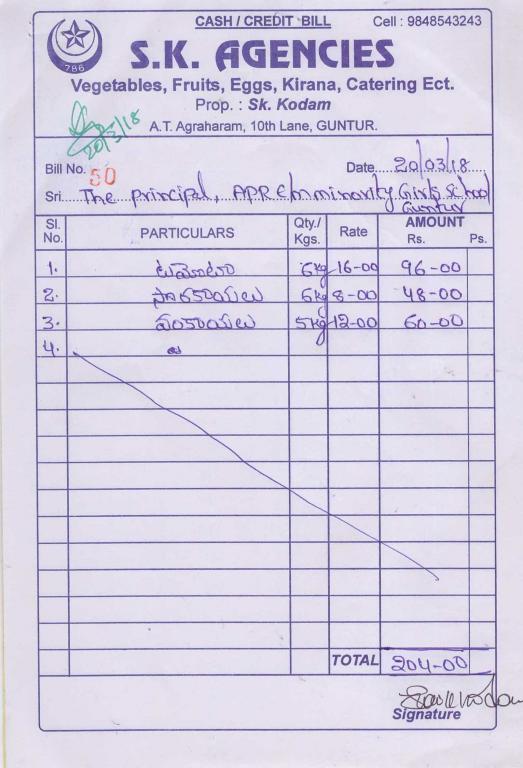 CASH / CREDIT BILL Cell : 9848543243
786
S.K. AGENCIES
Vegetables, Fruits, Eggs, Kirana, Catering Ect.
Prop. : Sk. Kodam
20/3/18
A.T. Agraharam, 10th Lane, GUNTUR.
Bill No. 50 Date 20/03/18
Sri The principal, APR Em minority Girls School
Guntur
Sl. No. PARTICULARS Qty./ Kgs. Rate AMOUNT Rs. Ps.
1. టమోటా 6kg 16-00 96-00
2. సొరకాయలు 6kg 8-00 48-00
3. వంకాయలు 5kg 12-00 60-00
4.
TOTAL 204-00
Signature